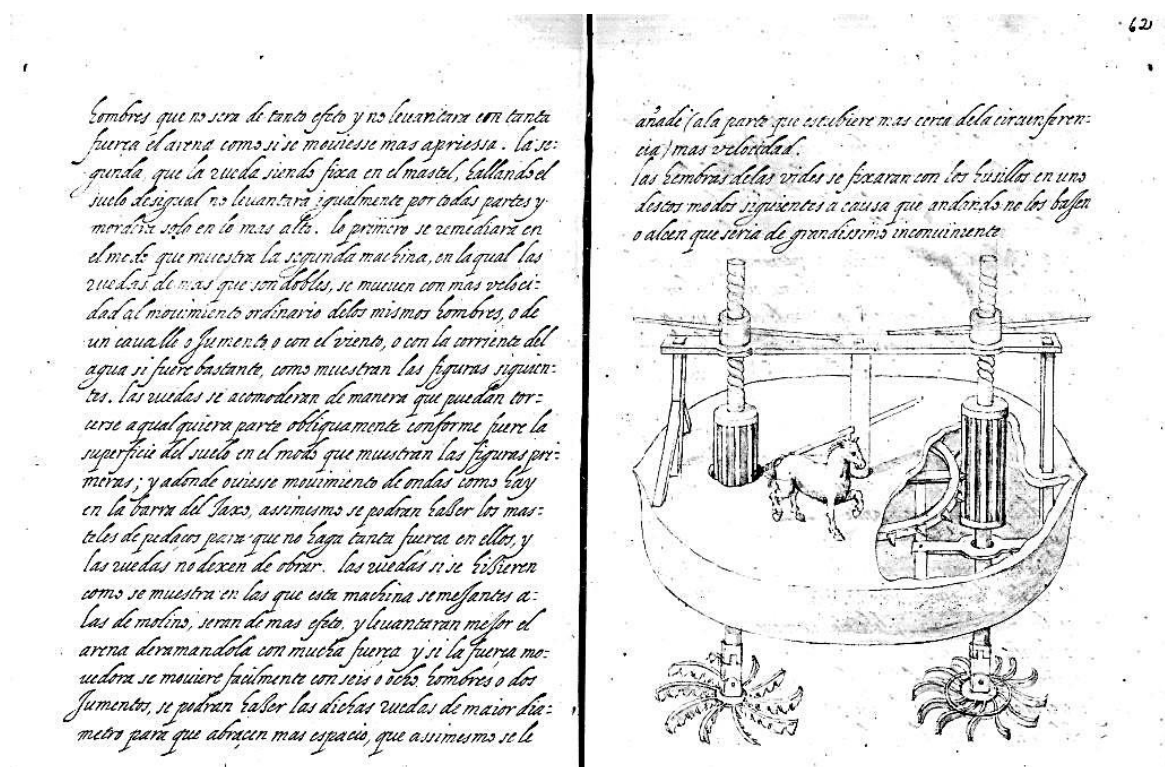 hombres que no sera de tanto efeto y no levantara con tanta
fuerça el arena como si se moviesse mas apriessa. la se=
gunda, que la rueda siendo fixa en el mastel, hallando el
suelo desigual no levantara igualmente por todas partes y
solo en lo mas alto. lo primero se remediara en
el modo que muestra la segunda machina, en la qual las
ruedas de mas que son dobles, se mueven con mas veloci=
dad al movimiento ordinario delos mismos hombres, o de
un cavallo o Jumento, o con el viento, o con la corriente del
agua si fuere bastante, como muestran las figuras siguien=
tes. las ruedas se acomoderan de manera que puedan tor=
cerse a qual quiera parte obliguamente conforme fuere la
superficie del suelo en el modo que muestran las figuras pri=
meras; y adonde oviesse movimiento de ondas como hay
en la barra del Taxo, assimesmo se podran hazer los mas=
teles de pedaços para que no haga tanta fuerça en ellos, y
las ruedas no dexen de obrar. las ruedas si se hizieren
como se muestra en las que esta machina semejantes a=
las de molino, seran de mas efeto, y levantaran mejor el
arena deramandola con mucha fuerça y si la fuerça mo=
vedora se moviere facilmente con seis o ocho hombres o dos
Jumentos, se podran hazer las dichas ruedas de maior dia=
metro para que abraçen mas espacio, que assimesmo se le
62
añade (ala parte que estubiere mas cerca dela circunferen=
cia) mas velocidad.
las hembras delas vides se fixaran con los husillos en uno
destos modos siguientes a causa que andando no los baxen
o alcen que seria de grandissimo inconviniente